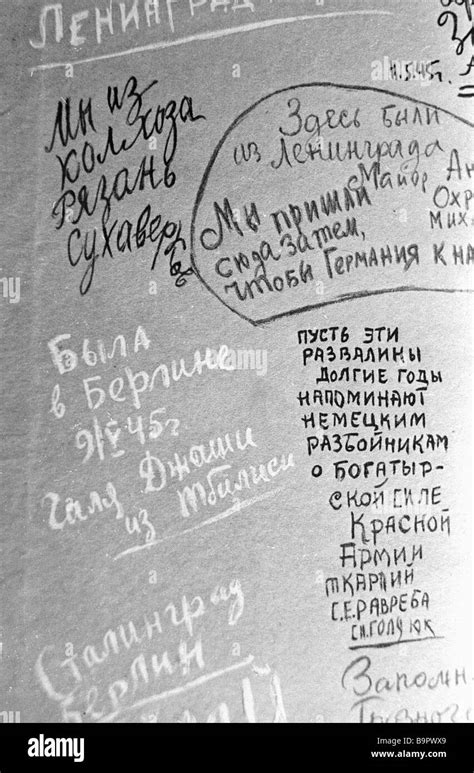 ЛЕНИНГРАД
11.5.45г.
МЫ ИЗ
КОЛХОЗА
РЯЗАНЬ
Здесь были
из Ленинграда
Майор
Мы пришли
сюда затем,
чтобы Германия к на
Была
в Берлине
9/V 45г
Галя Джаши
из Тбилиси
ПУСТЬ ЭТИ
РАЗВАЛИНЫ
ДОЛГИЕ ГОДЫ
НАПОМИНАЮТ
НЕМЕЦКИМ
РАЗБОЙНИКАМ
О БОГАТЫР-
СКОЙ СИЛЕ
КРАСНОЙ
АРМИИ
Сталинград
Берлин
Запомн
alamy
alamy
Image ID: B9PWX9
www.alamy.com